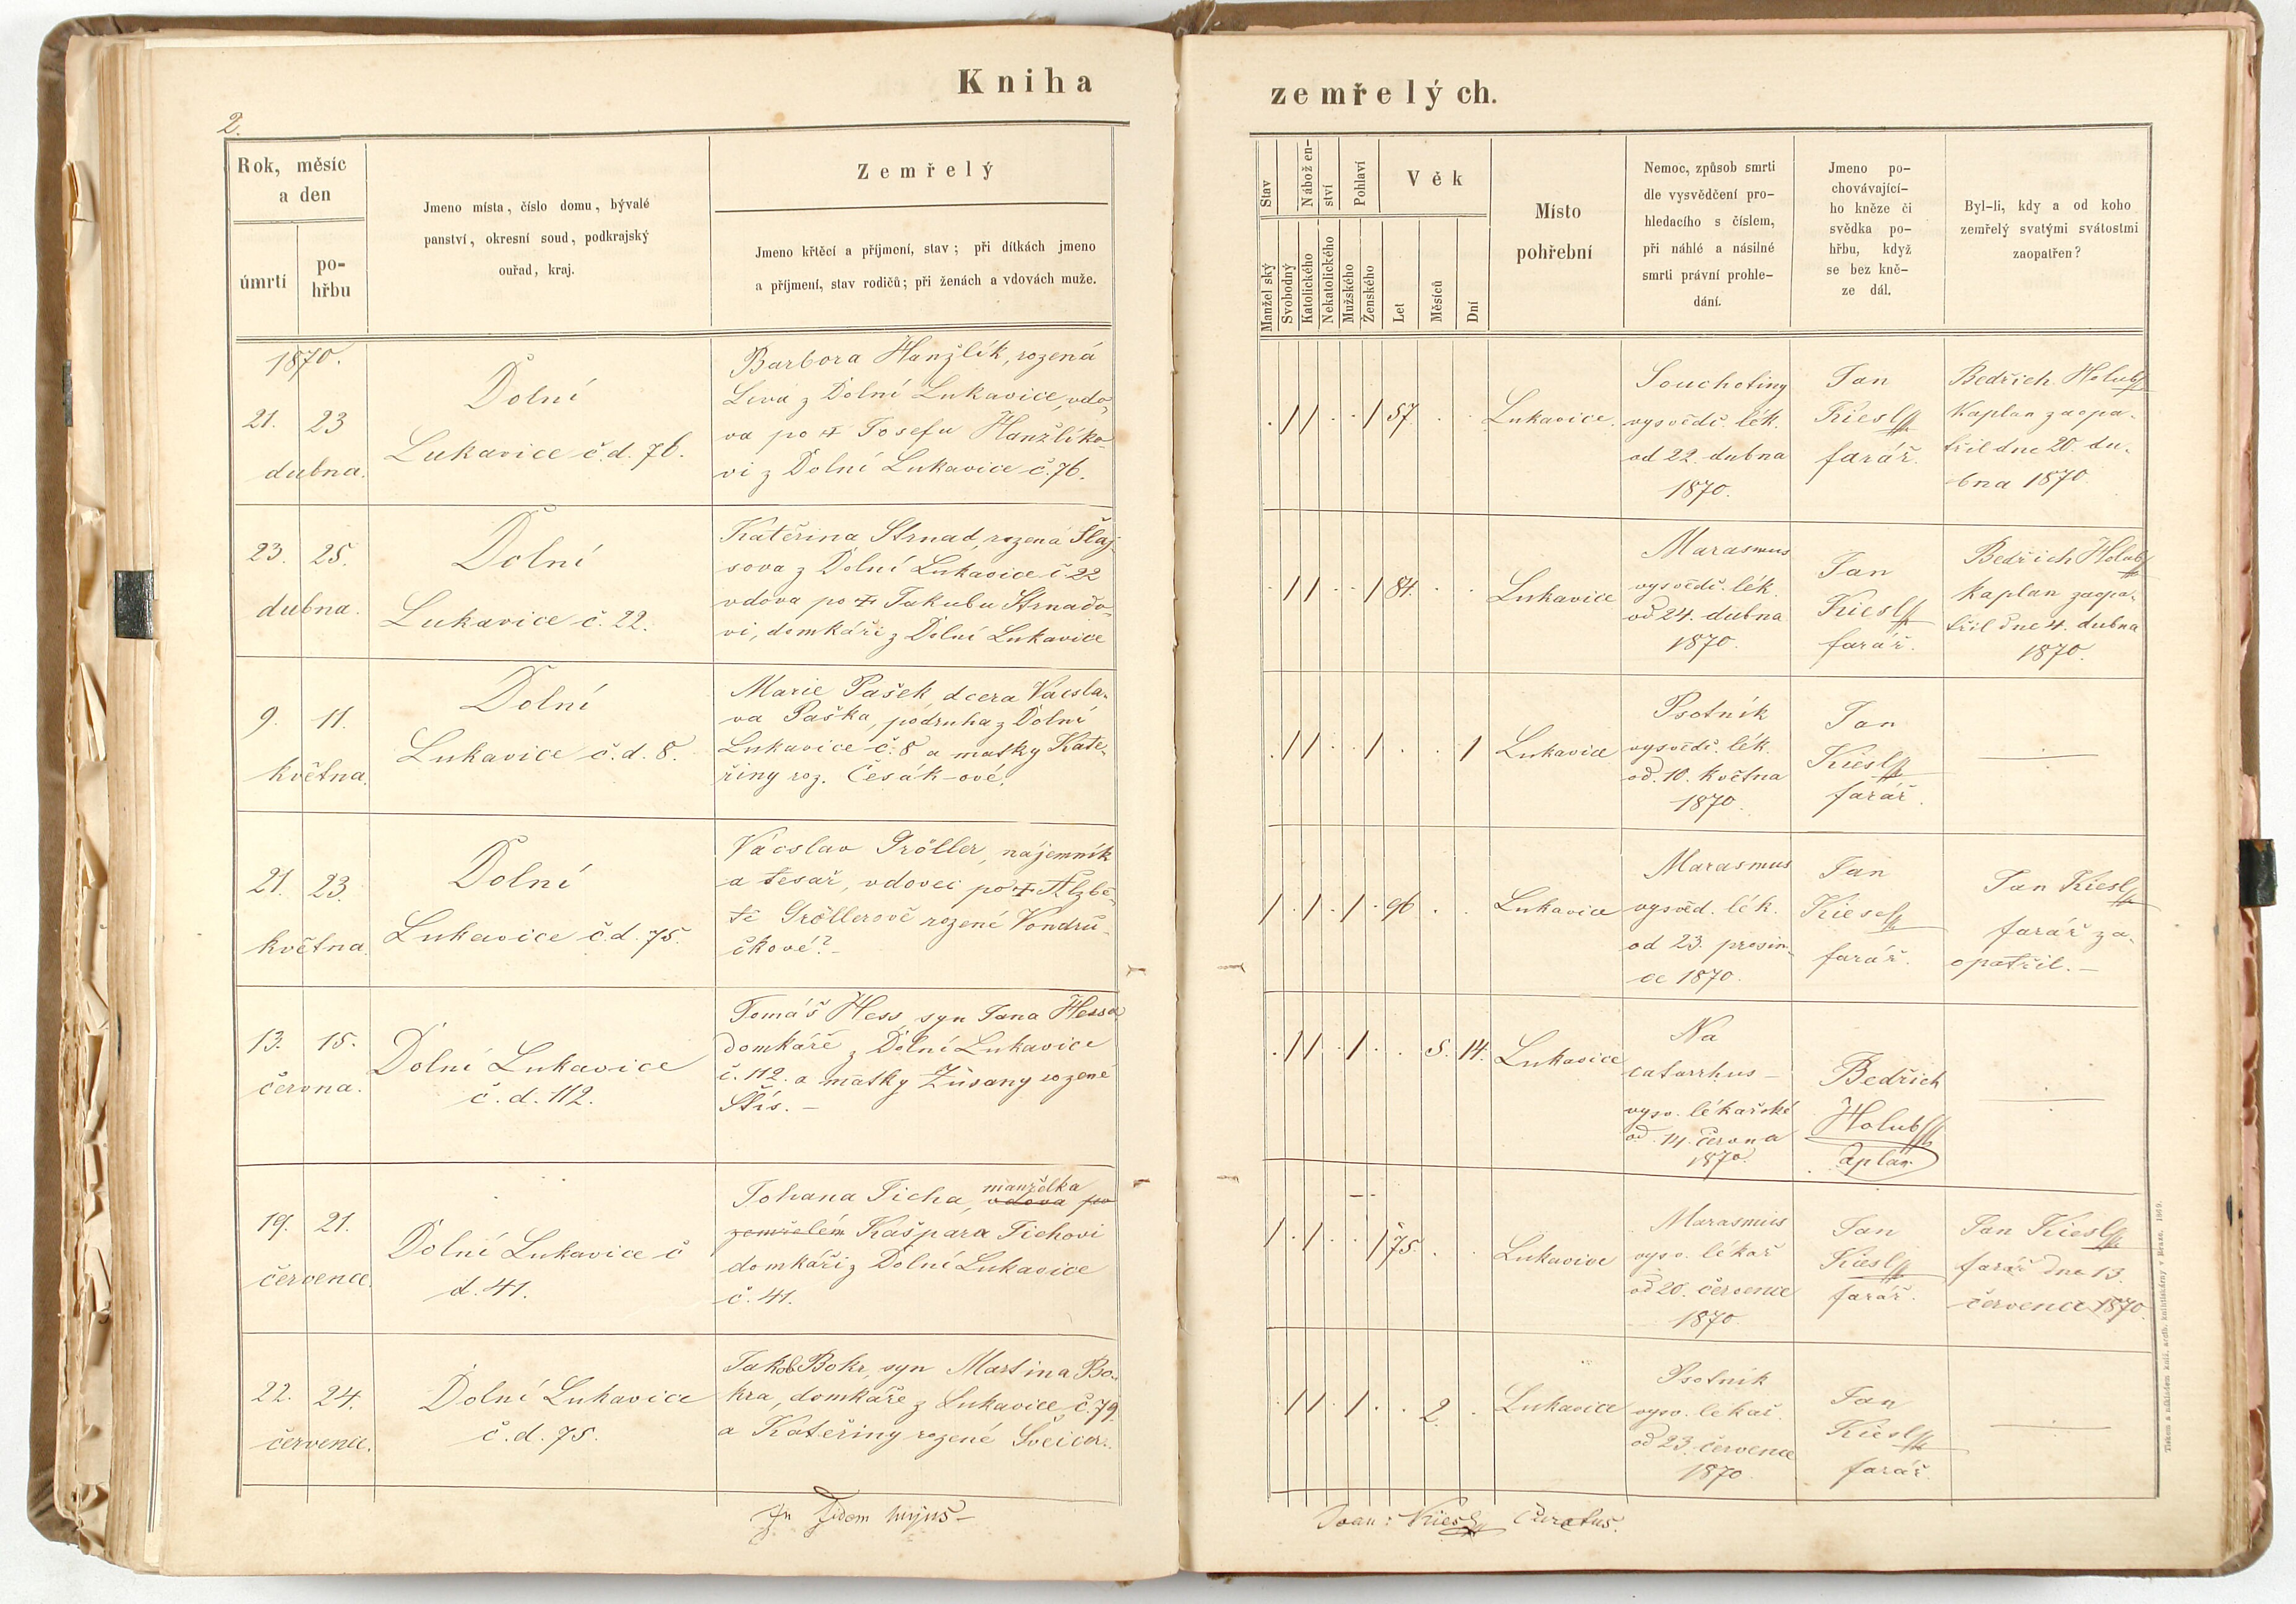 Kniha
zemřelých.
2.
Rok, měsíc
a den
úmrtí
po-
hřbu
Jmeno místa, číslo domu, bývalé
panství, okresní soud, podkrajský
ouřad, kraj.
Zemřelý
Jmeno křtěcí a příjmení, stav; při dítkách jmeno
a příjmení, stav rodičů; při ženách a vdovách muže.
Stav
Nábožen-
ství
Pohlaví
Věk
Manželský
Svobodný
Katolického
Nekatolického
Mužského
Ženského
Let
Měsíců
Dní
Místo
pohřební
Nemoc, způsob smrti
dle vysvědčení pro-
hledacího s číslem,
při náhlé a násilné
smrti právní prohle-
dání.
Jmeno po-
chovávající-
ho kněze či
svědka po-
hřbu, když
se bez kně-
ze dál.
Byl-li, kdy a od koho
zemřelý svatými svátostmi
zaopatřen?
1870.
21. 23
dubna.
Dolní
Lukavice č.d. 76.
Barbora Hanzlík, rozená
Levá z Dolní Lukavice, vdo-
va po † Josefu Hanzlíko-
vi z Dolní Lukavice č. 76.
. 1 1 . . 1 57 . .
Lukavice.
Souchotiny
vysvědč. lék.
od 22. dubna
1870.
Jan
Kiesl
farář.
Bedřich Holub
Kaplan zaopa-
třil dne 20. du-
bna 1870.
23. 25.
dubna.
Dolní
Lukavice č. 22.
Kateřina Strnad, rozená Šlaj-
sova z Dolní Lukavice č. 22
vdova po † Jakubu Strnado-
vi, domkáři z Dolní Lukavice
. 1 1 . . 1 84. . .
Lukavice
Marasmus
vysvědč. lék.
od 24. dubna
1870.
Jan
Kiesl
farář.
Bedřich Holub
kaplan zaopa-
třil dne 4. dubna
1870.
9. 11.
května.
Dolní
Lukavice č.d. 8.
Marie Pašek, dcera Vácsla-
va Paška, podruha z Dolní
Lukavice č. 8 a matky Kate-
řiny roz. Česák-ové.
. 1 1 . . 1 . . 1
Lukavice
Psotník
vysvědč. lék.
od. 10. května
1870.
Jan
Kiesl
farář.
21. 23.
května.
Dolní
Lukavice č.d. 75.
Vácslav Gröller, nájemník
a tesař, vdovec po † Alzbě-
tě Gröllerově rozené Vondru-
čkové? -
1 . 1 . 1 . 96 . .
Lukavice
Marasmus
vysvěd. lék.
od 23. prosin-
ce 1870.
Jan
Kiesl
farář.
Jan Kiesl
farář za-
opatřil. -
13. 15.
června.
Dolní Lukavice
č.d. 112.
Tomáš Hess syn Jana Hessa
domkáře z Dolní Lukavice
č. 112. a matky Zusany rozené
Stís. -
. 1 1 . 1 . . 5. 14.
Lukavice
Na
catarrhus -
vysv. lékařské
od 14. června
1870.
Bedřich
Holub
aplan
19. 21.
července.
Dolní Lukavice č
d. 41.
Johana Tichá, manželka vdova po
zemřelém Kašpara Tichovi
domkáři z Dolní Lukavice
č. 41.
1 . 1 . . 1 75. . .
Lukavice
Marasmus
vysv. lékař
od 20. července
1870.
Jan
Kiesl
farář.
Jan Kiesl
farář dne 13.
července 1870.
22. 24.
července.
Dolní Lukavice
č.d. 75.
Jakob Bokr, syn Martina Bo-
kra, domkáře z Lukavice č. 79
a Kateřiny rozené Šveicar.
. 1 1 . 1 . . 2. .
Lukavice
Psotník
vysv. lékař.
od 23. července
1870.
Jan
Kiesl
farář.
In fidem hujus -
Joan: Kiesl Curatus.